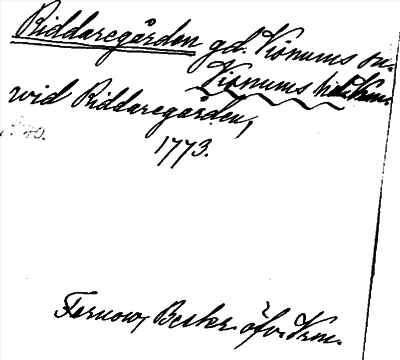 Riddaregården gd. Visnums sn.
Visnums hd. Vrm.
vid Riddaregården,
1773.
Fernow, Beskr. öfv. Vrm.